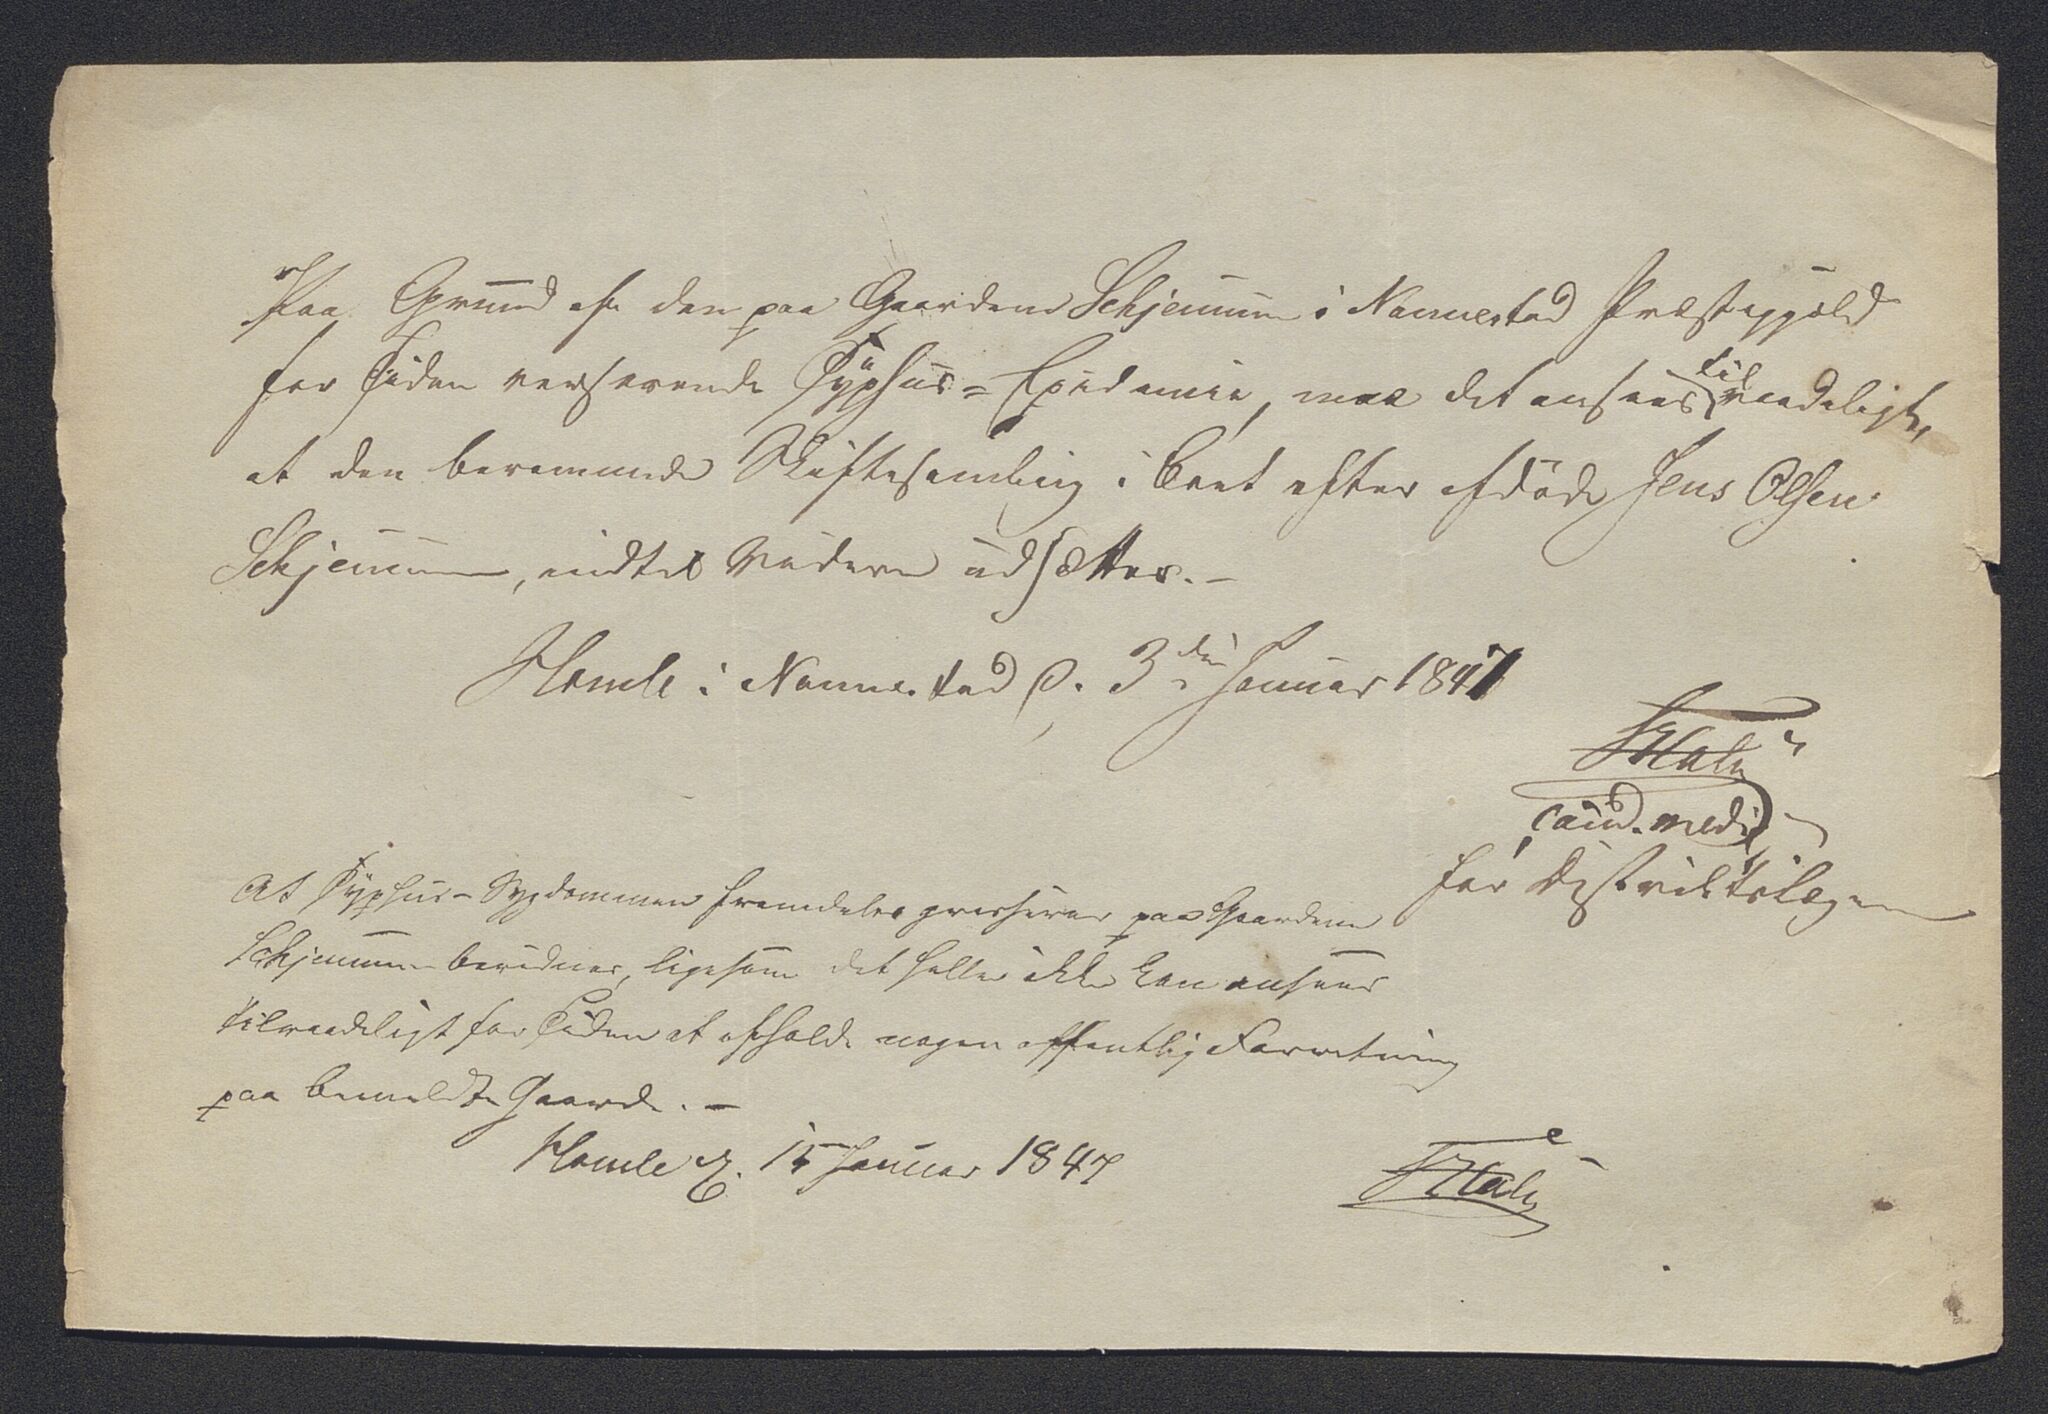 Paa Grund af den paa Gaarden Schjennum i Nannestad Præstegjæld
for Tiden verserende Typhus-Epidemie, maa det ansees tilraadeligt,
at den berammede Skiftesamling i Boet efter afdøde Jens Olsen
Schjennum, indtil Videre udsættes.-
Homle i Nannestad d. 3die Januar 1847
Hals
cand. med.
for Distriktslægen
At Typhus-Sygdommen fremdeles grasserer paa Gaarden
Schjennum bevidnes, ligesom det heller ikke kan ansees
tilraadeligt for Tiden at afholde nogen offentlig Forretning
paa bemeldte Gaard.-
Homle d. 15 Januar 1847
Hals